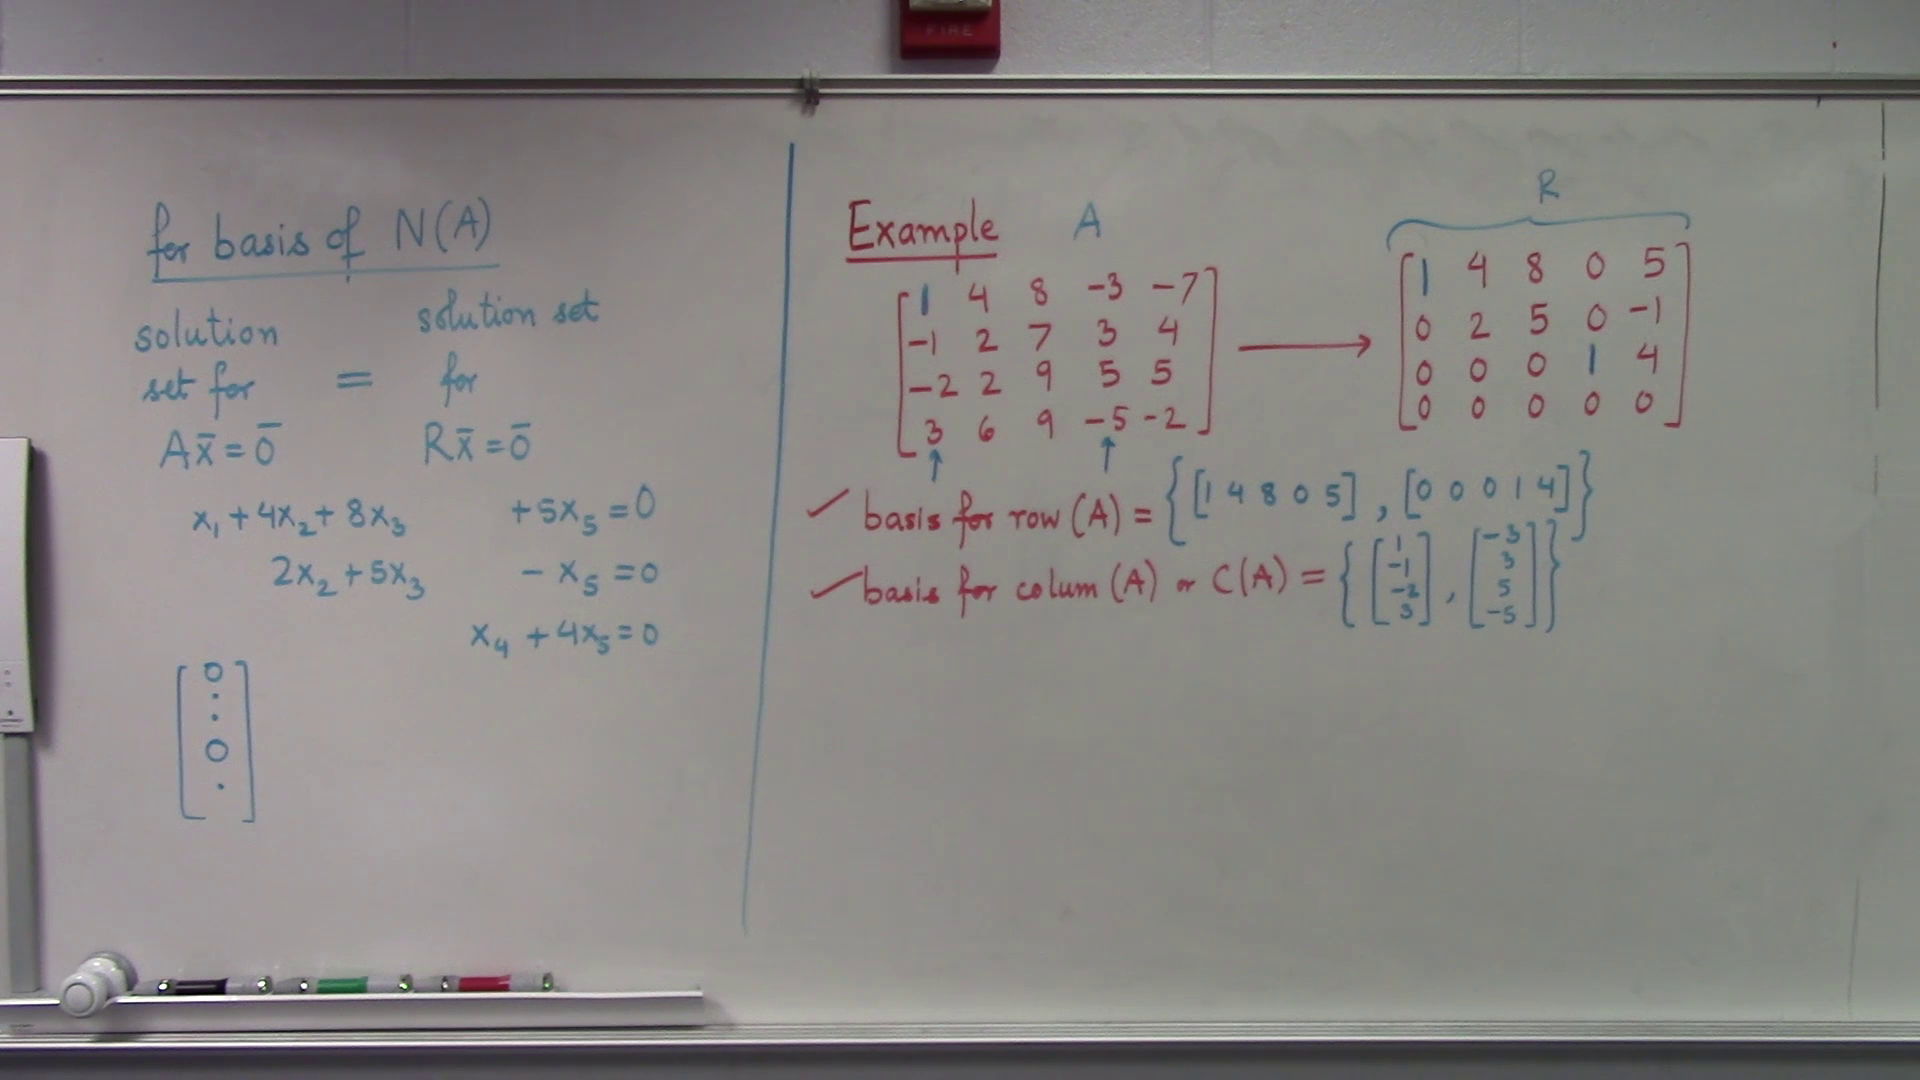 FIRE
for basis of N(A)
solution set for Ax̄ = 0̄ = solution set for Rx̄ = 0̄
x₁ + 4x₂ + 8x₃ + 5x₅ = 0
2x₂ + 5x₃ - x₅ = 0
x₄ + 4x₅ = 0
[ 0
.
.
0
. ]
Example A
[ 1 4 8 -3 -7
-1 2 7 3 4
-2 2 9 5 5
3 6 9 -5 -2 ]
→
R
[ 1 4 8 0 5
0 2 5 0 -1
0 0 0 1 4
0 0 0 0 0 ]
↑ ↑
✓ basis for row (A) = { [1 4 8 0 5] , [0 0 0 1 4] }
✓ basis for colum (A) or C(A) = { [1 -1 -2 3] , [-3 3 5 -5] }